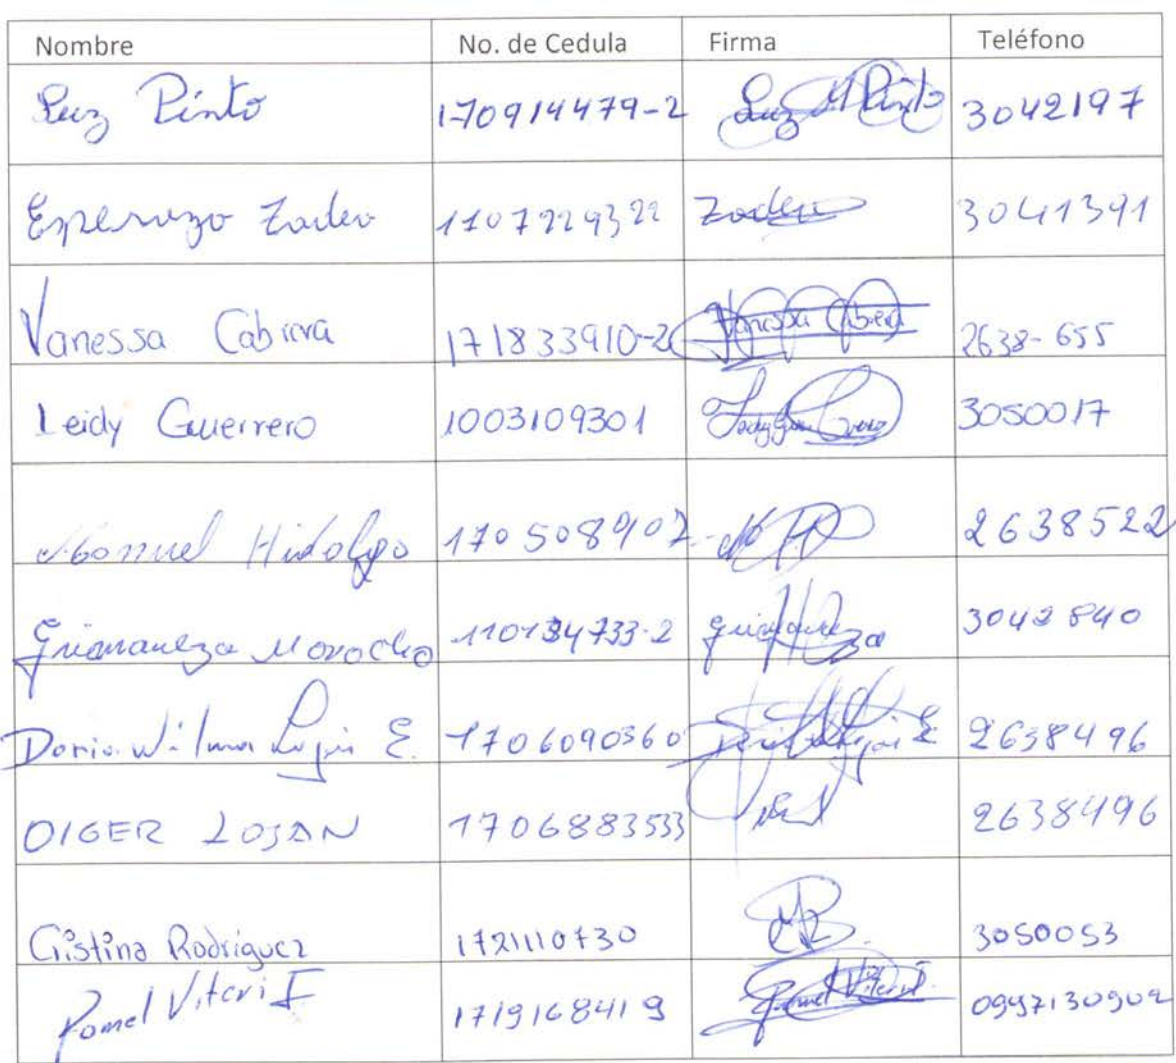 Nombre No. de Cedula Firma Teléfono
Luz Pinto 170914479-2 Luz M Pinto 3042197
1107229322 3041391
Vanessa Cabrera 171833910-2 Vanessa Cabrera 2638-655
Leidy Guerrero 1003109301 3050017
Manuel Hidalgo 170508907 2638522
Grimaneza Morocho 110134733-2 Grimaneza 3042840
Wilma E. 1706090360 2638496
OIGER LOJAN 1706883533 2638496
Cristina Rodriguez 1721110730 3050053
Romel Viteri 1719168419 Romel Viteri 0997130902